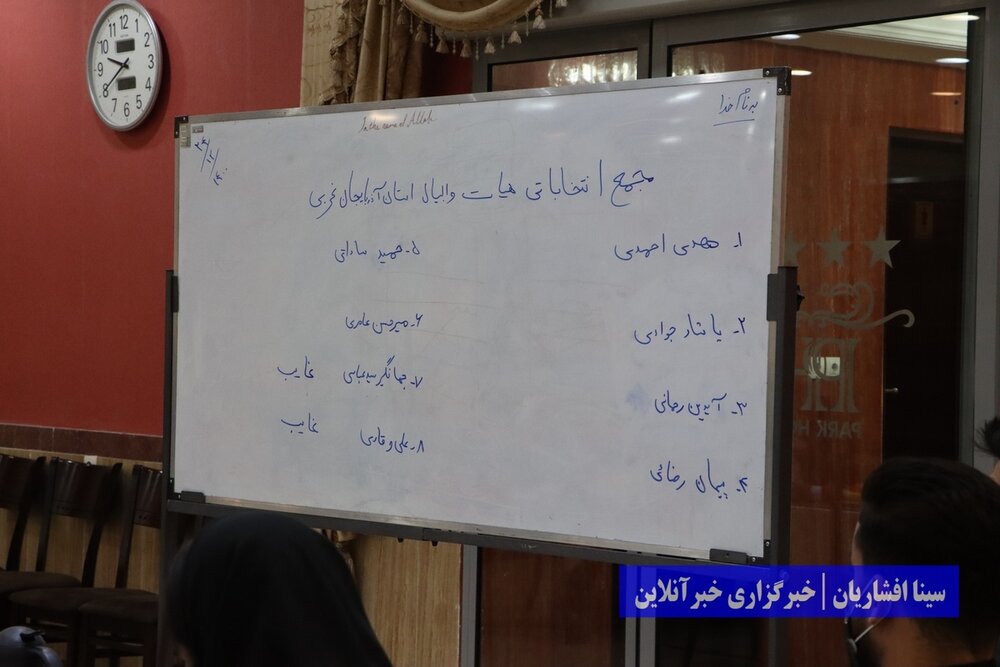 In the name of Allah
به نام خدا
۲۴/۱۲/۱۴۰۰
مجمع انتخاباتی هیات والیبال استان آذربایجان غربی
۱- مهدی احمدی
۲- یاشار جوادی
۳- آیدین رحمانی
۴- پیمان رضائی
۵- حمید ساداتی
۶- میرحسن عامری
۷- جهانگیر سیدعباسی غایب
۸- علی وقاری غایب
PARK H
سینا افشاریان | خبرگزاری خبرآنلاین
12
1
2
3
4
5
6
7
8
9
10
11